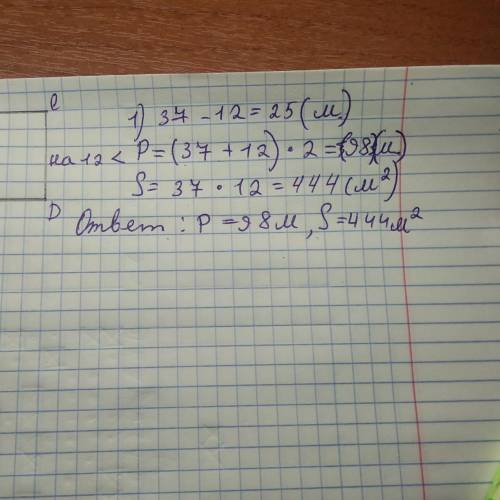 C
1) 37 - 12 = 25 (м)
на 12 < P = (37 + 12) · 2 = (98)(м)
S = 37 · 12 = 444 (м²)
D
Ответ: P = 98 м, S = 444 м²